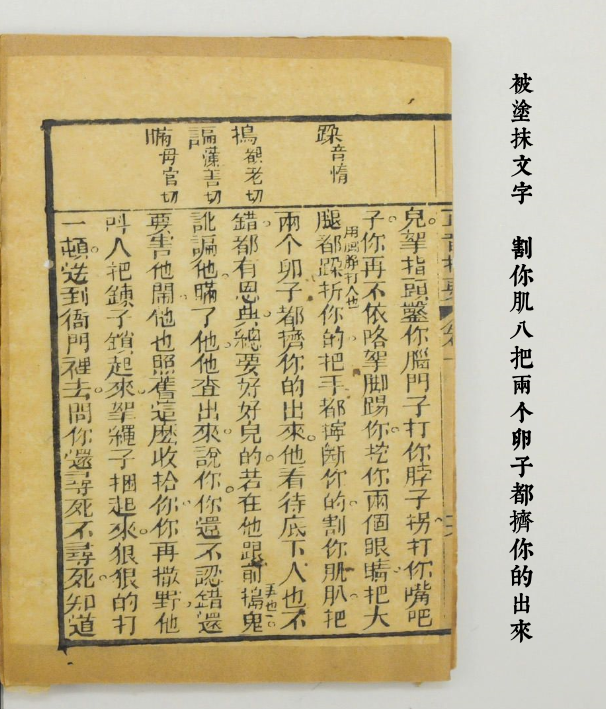 被塗抹文字 割你肌八把兩个卵子都擠你的出來
跺音惰
搗 老切
謆 切
瞞毋官切
兒拏指頭鑿你腦門子打你脖子拐打你嘴吧
子你再不依咯拏脚踢你挖你兩個眼睛把大
腿都跺折你的把手都擰斷你的割你肌肌把
兩个卵子都擠你的出來他看待底下人也不
錯都有恩典總要好好兒的若在他跟前搗鬼
訛謆他瞞了他他查出來說你你還不認錯還
要害他鬧他也照舊這麽收拾你你再撒野他
呌人把鍊子鎖起來拏繩子捆起來狠狠的打
一頓送到衙門裡去問你還尋死不尋死知道